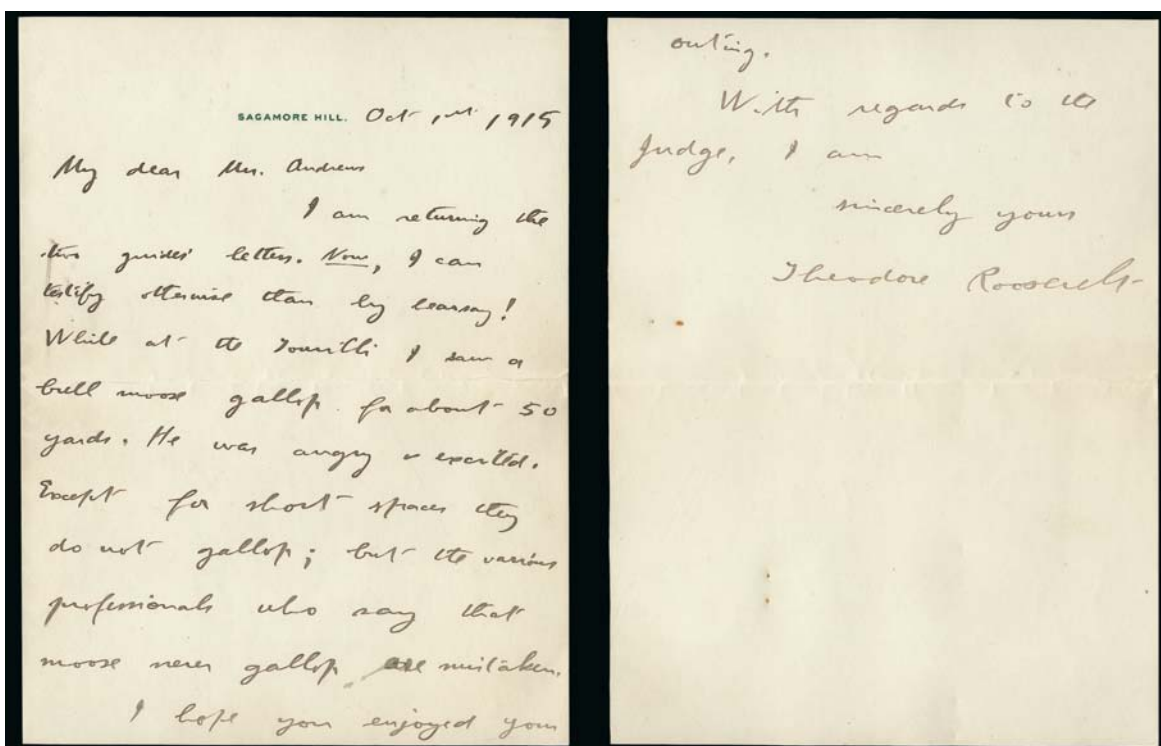 SAGAMORE HILL. Oct 1st 1915
My dear Mrs. Andrews
I am returning the
two guides' letters. Now, I can
testify otherwise than by hearsay!
While at the Tourilli I saw a
bull moose gallop for about 50
yards. He was angry & excited.
Except for short spaces they
do not gallop; but the various
professionals who say that
moose never gallop are mistaken.
I hope you enjoyed your
outing.
With regards to the
Judge, I am
sincerely yours
Theodore Roosevelt